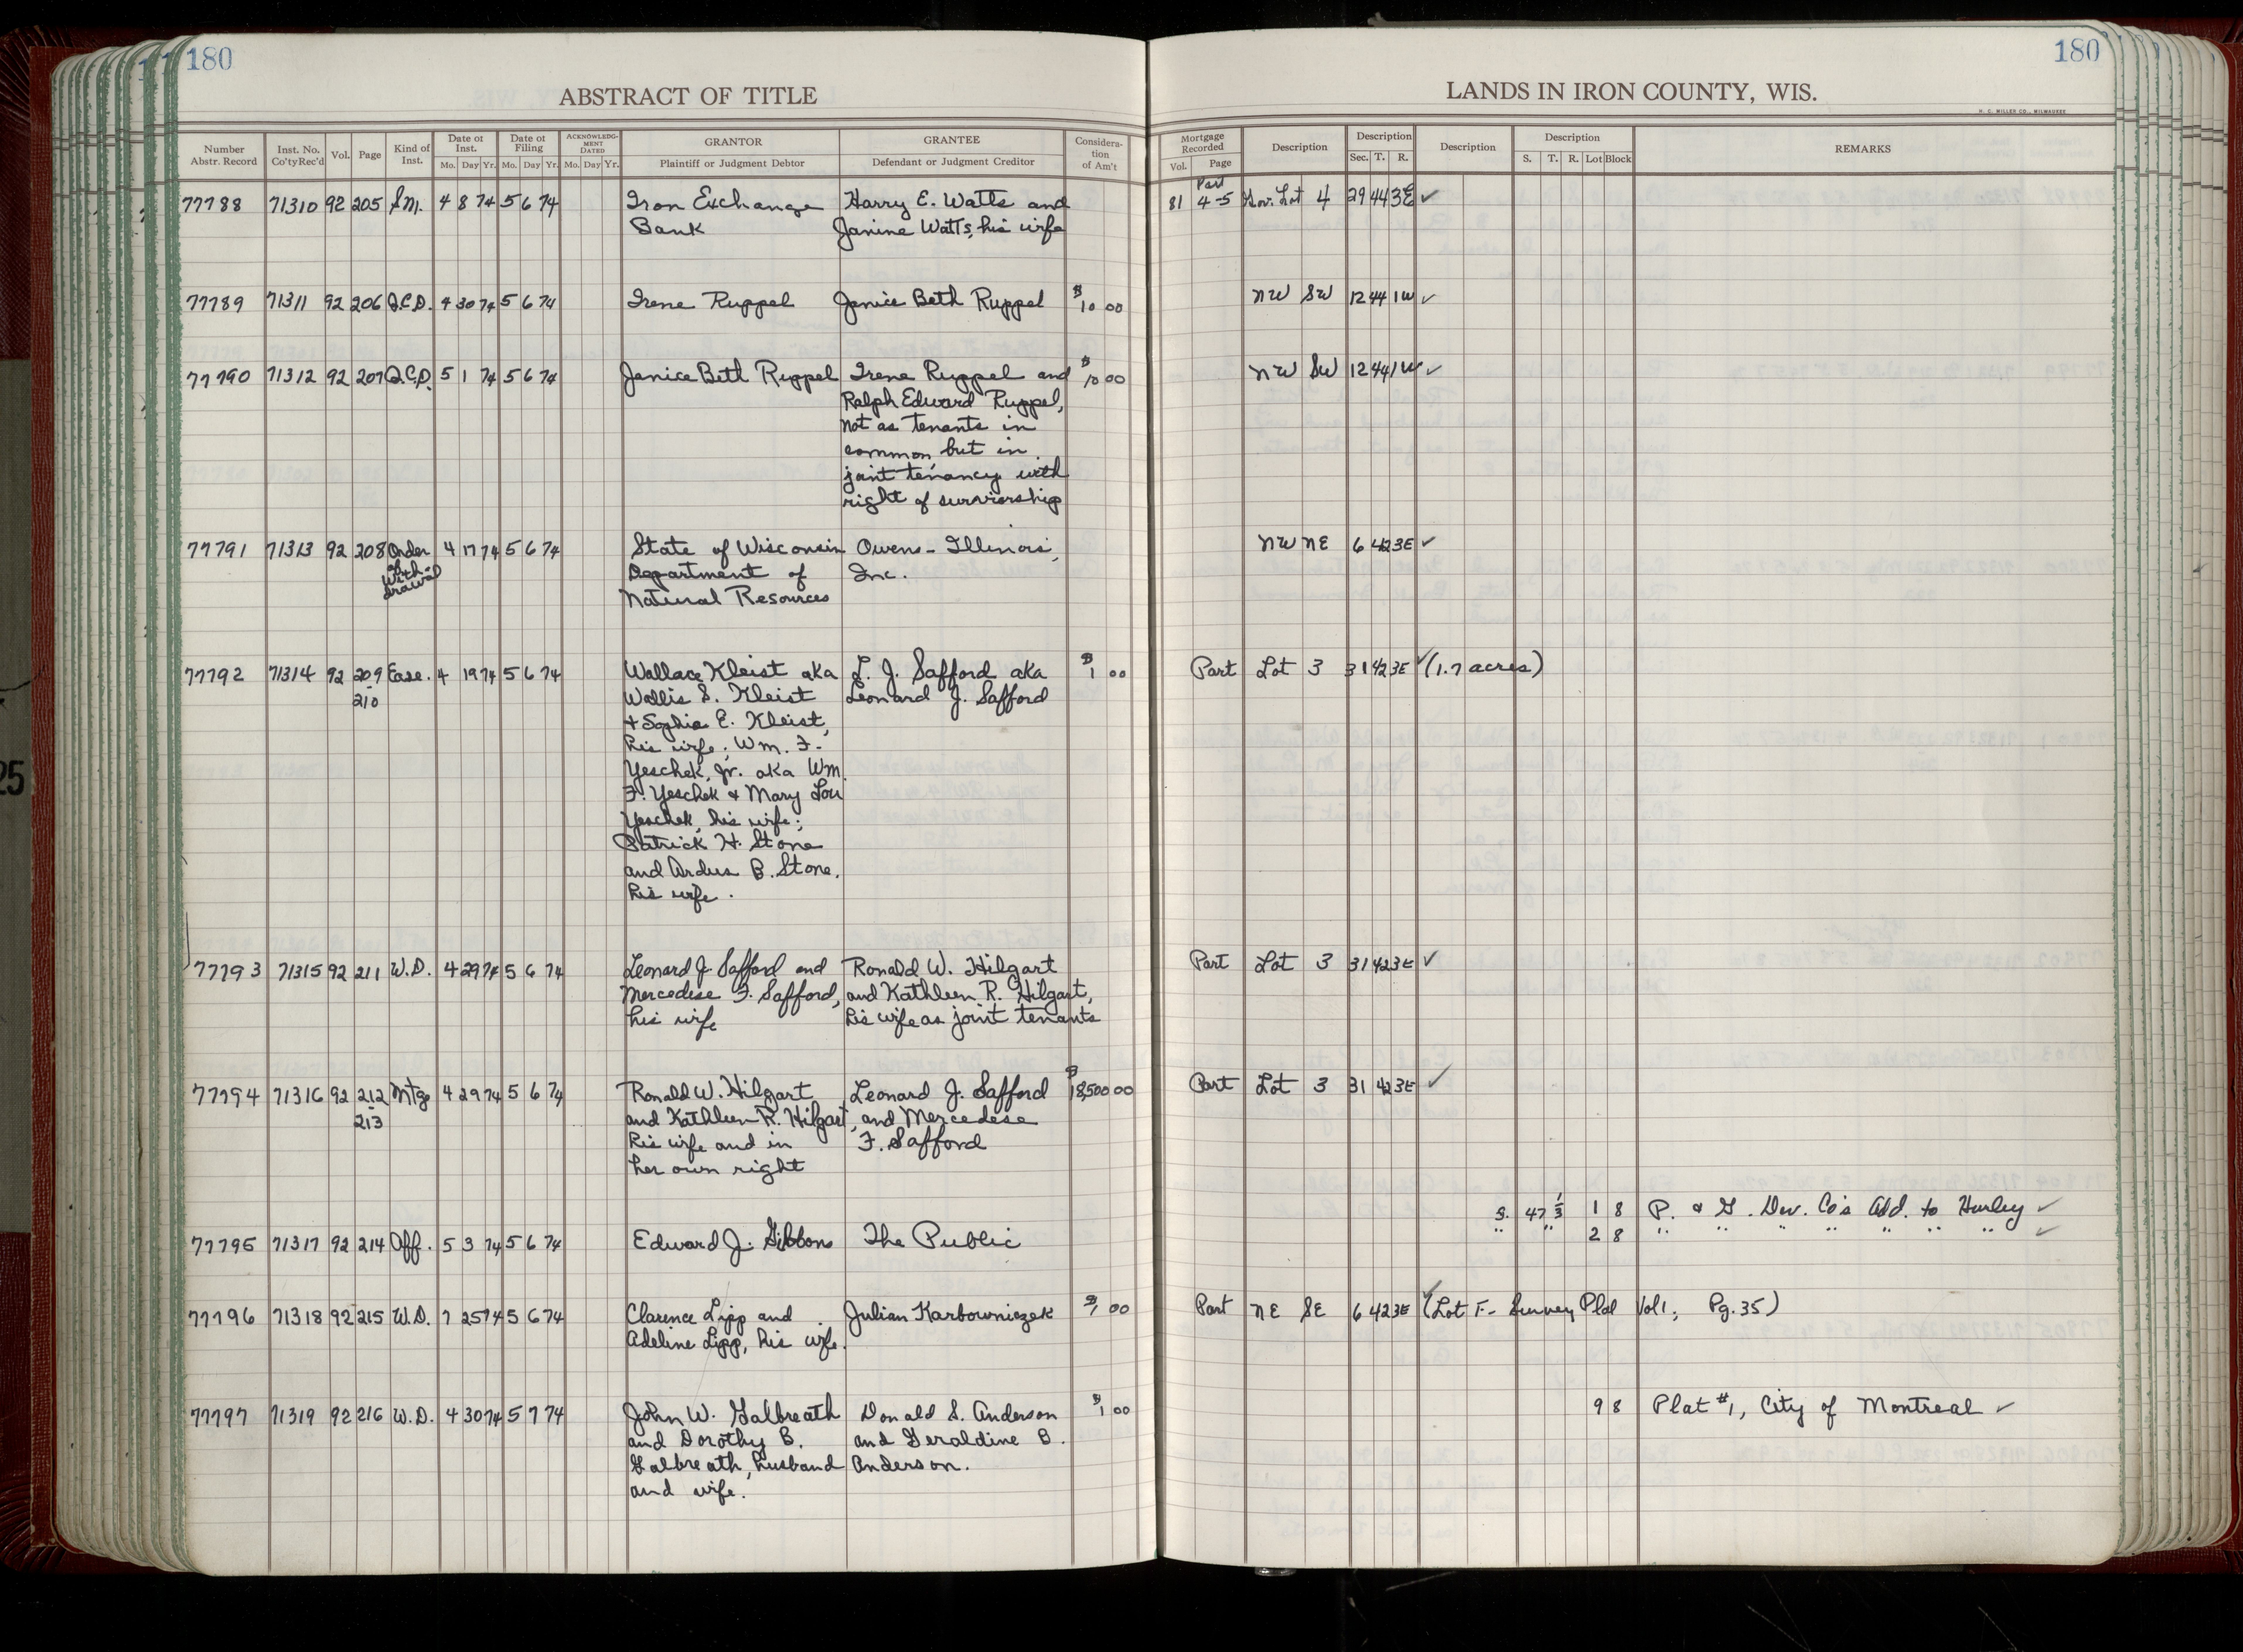 180
180
ABSTRACT OF TITLE
LANDS IN IRON COUNTY, WIS.
H. C. MILLER CO., MILWAUKEE
Number Abstr. Record Inst. No. Co'ty Rec'd Vol. Page Kind of Inst. Date of Inst. Mo. Day Yr. Date of Filing Mo. Day Yr. ACKNOWLEDGMENT DATED Mo. Day Yr. GRANTOR Plaintiff or Judgment Debtor GRANTEE Defendant or Judgment Creditor Consideration of Am't
Mortgage Recorded Vol. Page Description Description Sec. T. R. Description Description S. T. R. Lot Block REMARKS
Part
77788 71310 92 205 S.M. 4 8 74 5 6 74 Iron Exchange Harry E. Watts and 81 4-5 Gov. Lot 4 29 44 3E ✓
Bank Janine Watts, his wife
77789 71311 92 206 Q.C.D. 4 30 74 5 6 74 Irene Ruppel Janice Beth Ruppel $10 00 NW SW 12 44 1W ✓
77790 71312 92 207 Q.C.D. 5 1 74 5 6 74 Janice Beth Ruppel Irene Ruppel and $10 00 NW SW 12 44 1W ✓
Ralph Edward Ruppel,
not as tenants in
common, but in
joint tenancy with
right of surviorship
77791 71313 92 208 Order 4 17 74 5 6 74 State of Wisconsin Owens-Illinois, NW NE 6 42 3E ✓
of With- Department of Inc.
drawal Natural Resources
77792 71314 92 209 Ease. 4 19 74 5 6 74 Wallace Kleist aka L. J. Safford aka $1 00 Part Lot 3 31 42 3E ✓ (1.7 acres)
-210 Wallis S. Kleist Leonard J. Safford
+ Sophie E. Kleist,
his wife; Wm. F.
Yeschek, Jr. aka Wm.
F. Yeschek + Mary Lou
Yeschek, his wife;
Patrick H. Stone
and Ardus B. Stone,
his wife.
77793 71315 92 211 W.D. 4 29 74 5 6 74 Leonard J. Safford and Ronald W. Hilgart Part Lot 3 31 42 3E ✓
Mercedese F. Safford, and Kathleen R. Hilgart,
his wife his wife as joint tenants
77794 71316 92 212 Mtge 4 29 74 5 6 74 Ronald W. Hilgart Leonard J. Safford $18,500 00 Part Lot 3 31 42 3E ✓
-213 and Kathleen R. Hilgart, and Mercedese
his wife and in F. Safford
her own right
S. 47 1/3 1 8 P. & G. Dev. Co's Add. to Hurley ✓
" " 2 8 " " " " " " " ✓
77795 71317 92 214 Aff. 5 3 74 5 6 74 Edward J. Gibbons The Public
77796 71318 92 215 W.D. 7 25 74 5 6 74 Clarence Lipp and Julian Karbowniczek $1 00 Part NE SE 6 42 3E ✓ (Lot F- Survey Plat Vol 1, Pg. 35)
Adeline Lipp, his wife.
77797 71319 92 216 W.D. 4 30 74 5 7 74 John W. Galbreath Donald S. Anderson $1 00 9 8 Plat #1, City of Montreal ✓
and Dorothy B. and Geraldine B.
Galbreath, husband Anderson.
and wife.
25